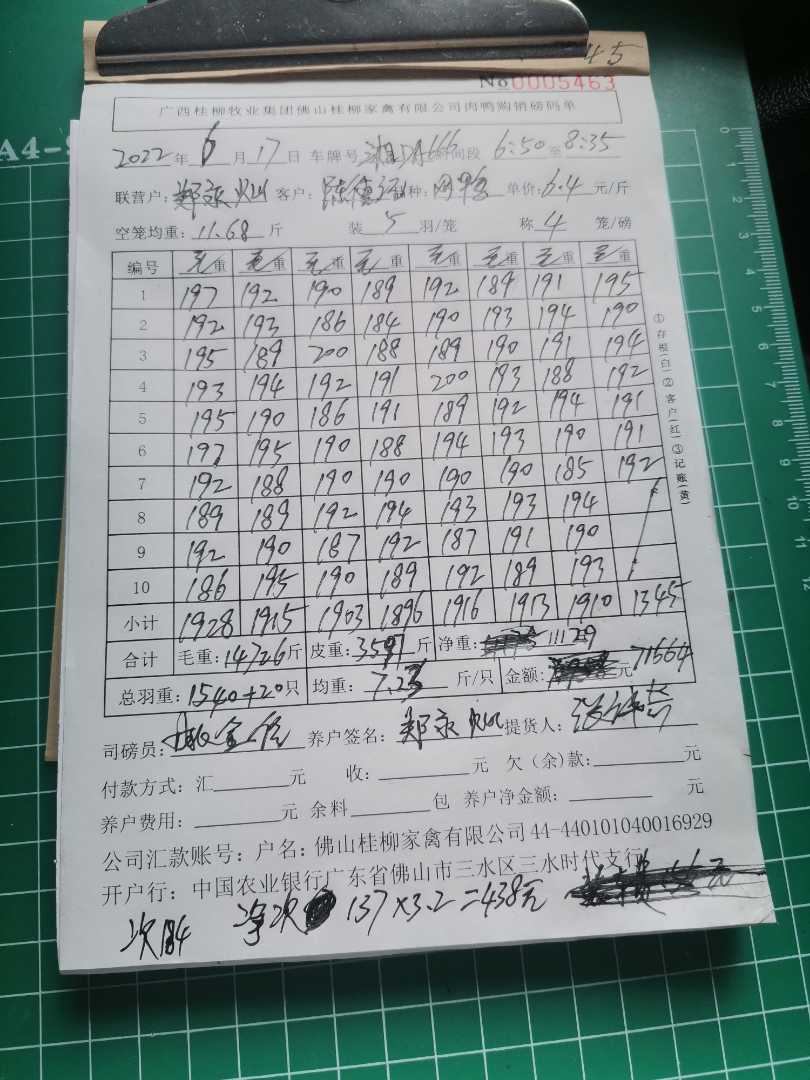 45
No 0005463
广西桂柳牧业集团佛山桂柳家禽有限公司肉鸭购销磅码单
2022 年 6 月 17 日 车牌号 时间段 6:50 至 8:35
联营户: 客户: 种: 单价: 6.4 元/斤
空笼均重: 11.68 斤 装 5 羽/笼 称 4 笼/磅
编号 毛重 毛重 毛重 毛重 毛重 毛重 毛重 毛重
1 197 192 190 189 192 189 191 195
2 192 193 186 184 190 193 194 190
3 195 189 200 188 189 190 191 194
4 193 194 192 191 200 193 188 192
5 195 190 186 191 189 192 194 191
6 197 195 190 188 194 193 190 191
7 192 188 190 190 190 190 185 192
8 189 189 192 194 193 193 194
9 192 190 187 192 187 191 190
10 186 195 190 189 192 189 193
小计 1928 1915 1903 1896 1916 1913 1910 1345
合计 毛重: 14726 斤 皮重: 3597 斤 净重: 11129
总羽重: 1540+20 只 均重: 7.23 斤/只 金额: 元 71664
司磅员: 养户签名: 提货人:
付款方式: 汇 元 收: 元 欠(余)款: 元
养户费用: 元 余料 包 养户净金额: 元
公司汇款账号: 户名: 佛山桂柳家禽有限公司 44-440101040016929
开户行: 中国农业银行广东省佛山市三水区三水时代支行
次184 净次 137×3.2=438元
①存根(白)②客户(红)③记账(黄)